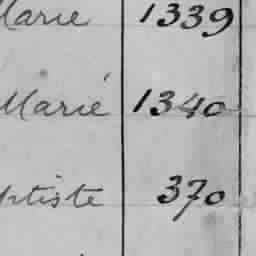 Marie 1339
Marie 1340
ptiste 370